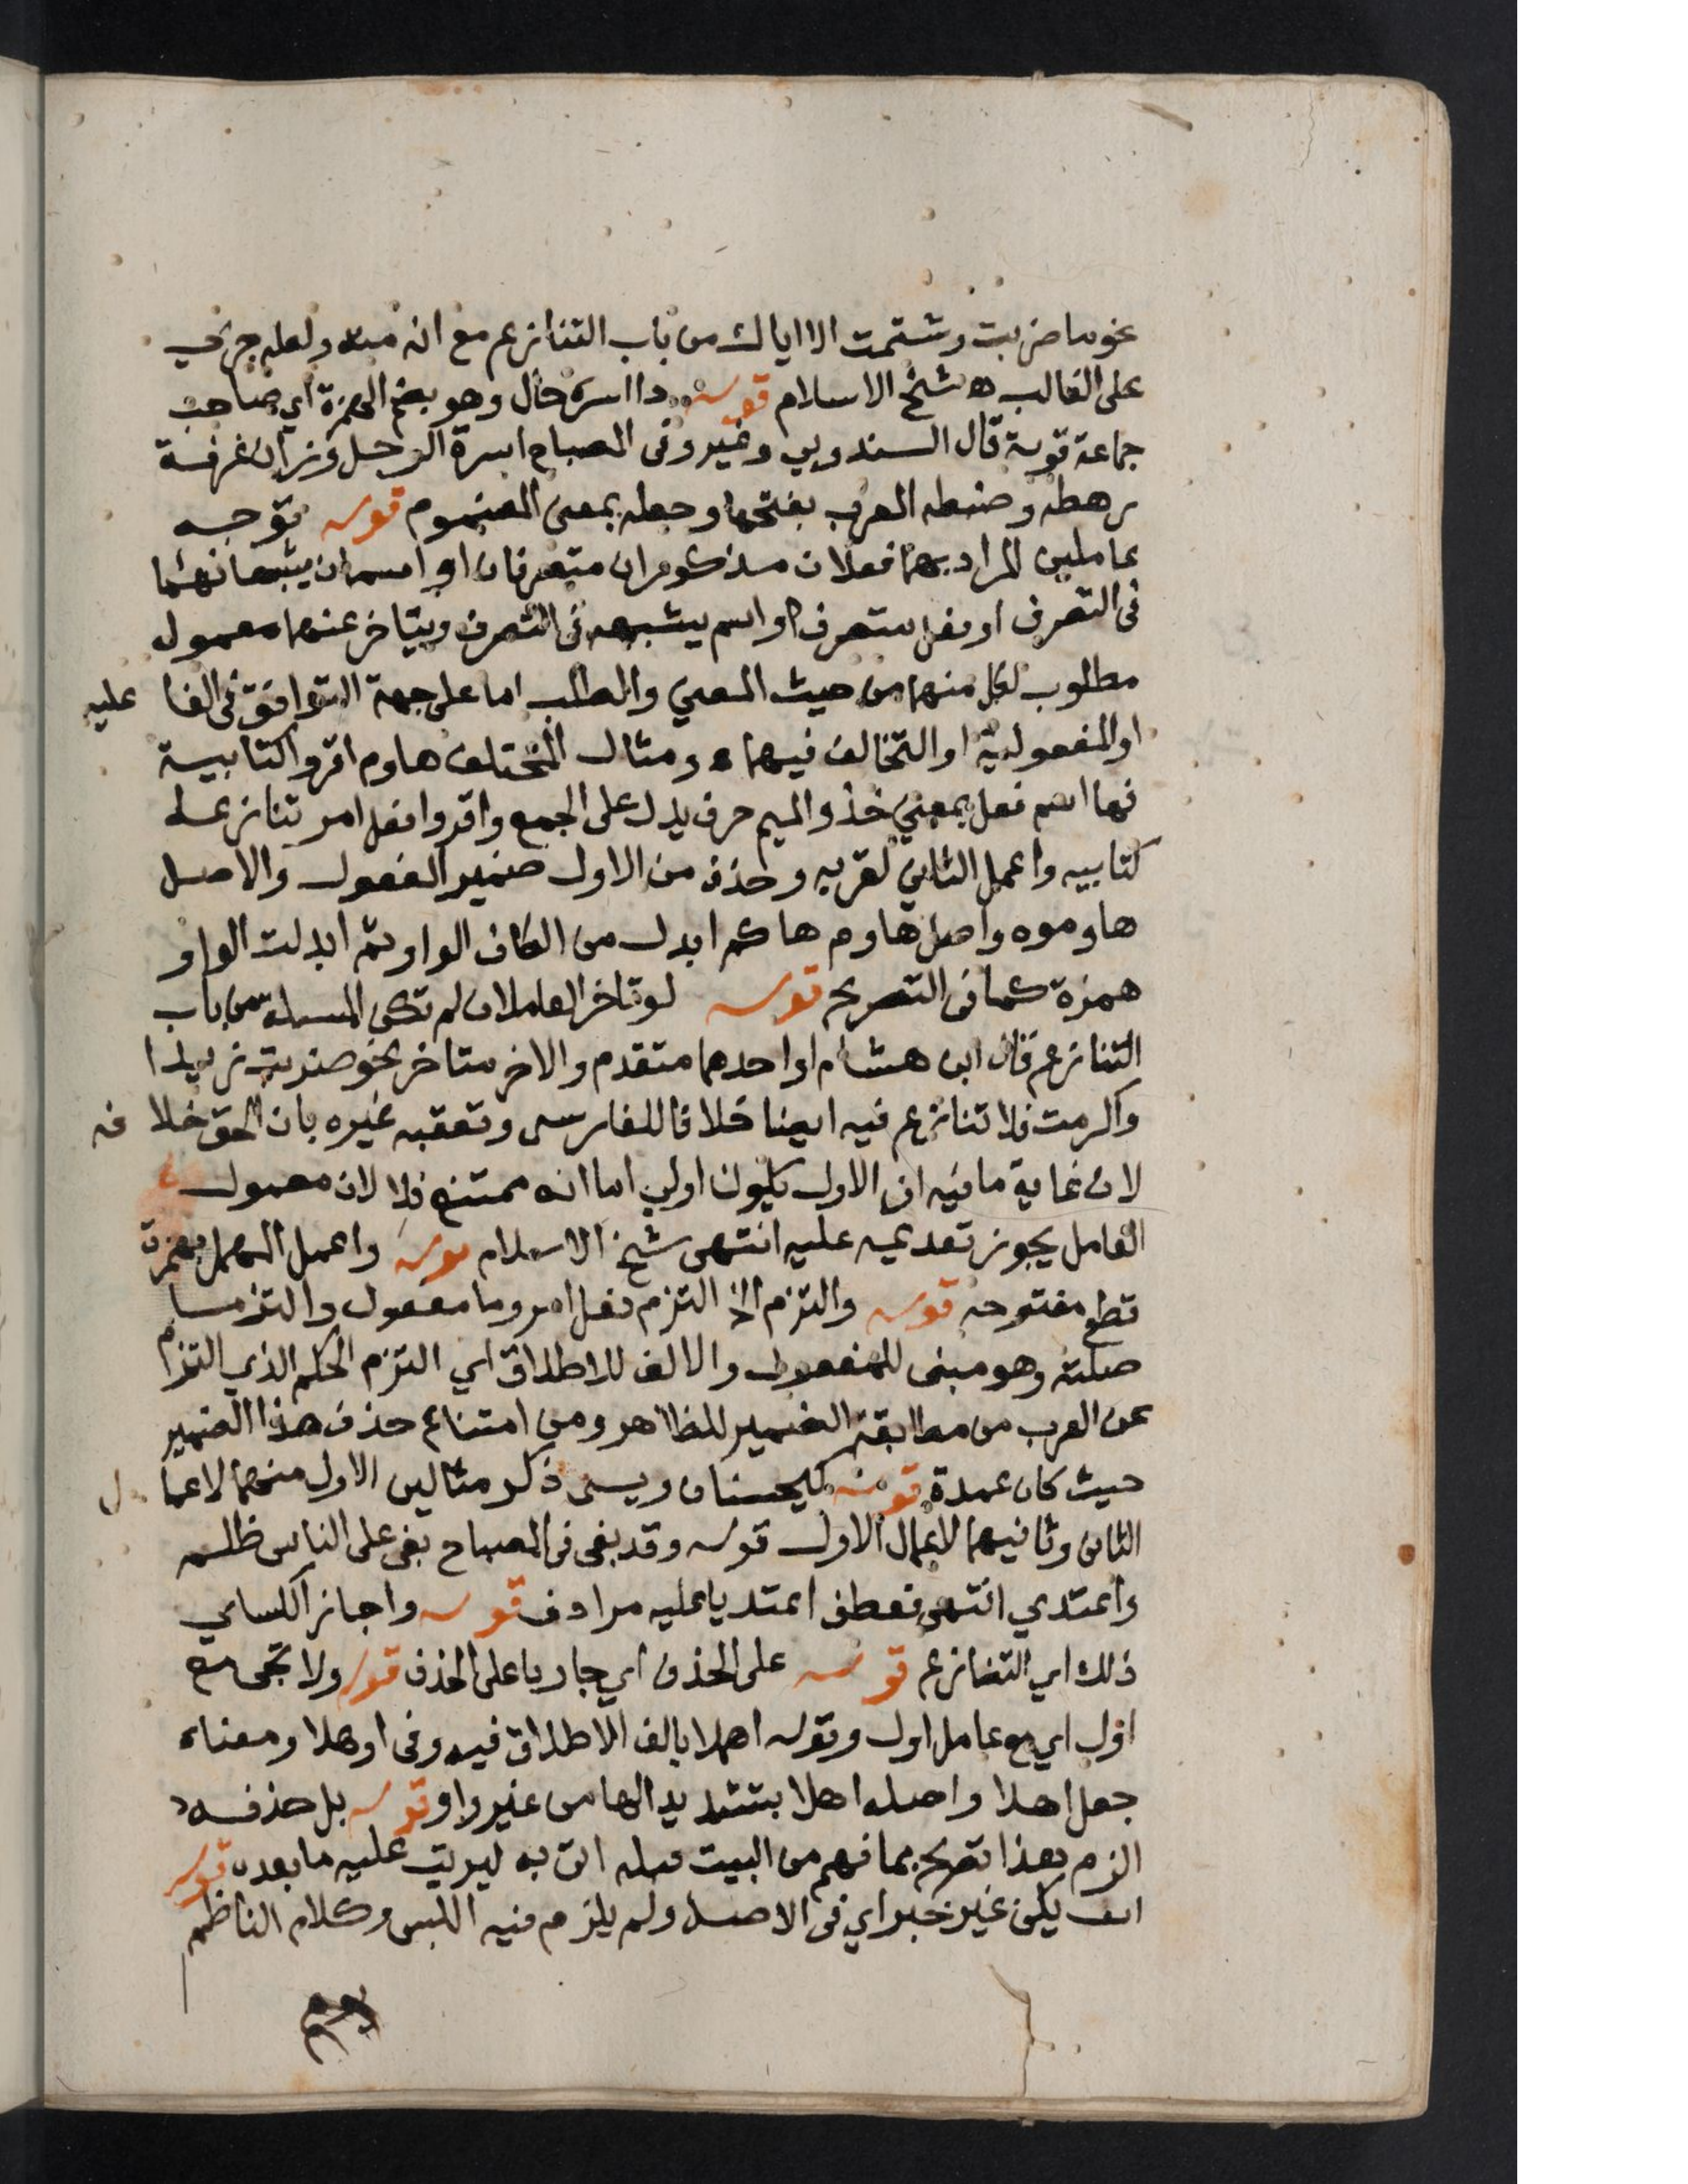 نحو ما ضربت وشتمت الا اياك من باب التنازع مع انه منه ولعله جري
على الغالب اه شيخ الاسلام قوله ذا اسرة حال وهو بضم الهمزة اي صاحب
جماعة قوية قال السندوبي وغيره وفى المصباح اسرة الرجل وزان غرفة
رهطه وضبطه المعرب بفتحها وجعله بمعنى المضموم قوله توجه
عاملين المراد بهما فعلان مذكوران متصرفان او اسمان يشبهانهما
فى التصرف او فعل متصرف واسم يشبهه فى التصرف ويتاخر عنهما معمول
مطلوب لكل منهما من حيث المعني والطلب اما على جهة التوافق فى الفا عليه
او المفعولية او التخالف فيهما ومثال المختلف هاوم اقروا كتابيه
فها اسم فعل بمعني خذ والميم حرف يدل على الجمع واقروا فعل امر تنازعا
كتابيه واعمل الثاني لقربه وحذف من الاول ضمير المفعول والاصل
هاوموه واصل هاوم هاكم ابدل من الكاف الواو ثم ابدلت الواو
همزة كما فى التصريح قوله لو تاخر العاملان لم تكن المسيلة من باب
التنازع قال ابن هشام او احدهما متقدم والاخر متاخر نحو ضربت زيدا
واكرمت فلا تنازع فيه ايضا خلافا للفارسى وتعقبه غيره بان الحق خلا فه
لان غاية ما فيه ان الاول يكون اولي اما انه ممتنع فلا لان معمول
العامل يجوز تقديمه عليه انتهى شيخ الاسلام قوله واعمل المهمل بهمزة
قطع مفتوحه قوله والتزم الخ التزم فعل امر وما مفعول والتزما
صلته وهو مبنى للمفعول والالف للاطلاق اي التزم الحكم الذي التزم
عن العرب من مطابقة الضمير للظاهر ومن امتناع حذف هذا الضمير
حيث كان عمدة قوله كيحسنان ويسى ذكر مثالين الاول منهما لاعما ل
الثانى وثانيهما لاعمال الاول قوله وقد بغى فى المصباح بغى على الناس ظلم
واعتدي انتهى فعطف اعتديا عليه مرادف قوله واجاز الكساي
ذلك اي التنازع قوله على الحذف اي جاريا على الحذف قوله ولا تجى مع
اول اي مع عامل اول وقوله اهملا بالف الاطلاق فيه وفى اوهلا ومعناه
جعل اهلا واصله اهلا بتشديد الها من غير واو قوله بل حذفه
الزم هذا تصريح بما فهم من البيت قبله اتى به ليرتب عليه ما بعده قوله
ان يكن غير خبر اي فى الاصل ولم يلزم فيه اللبس وكلام الناظم